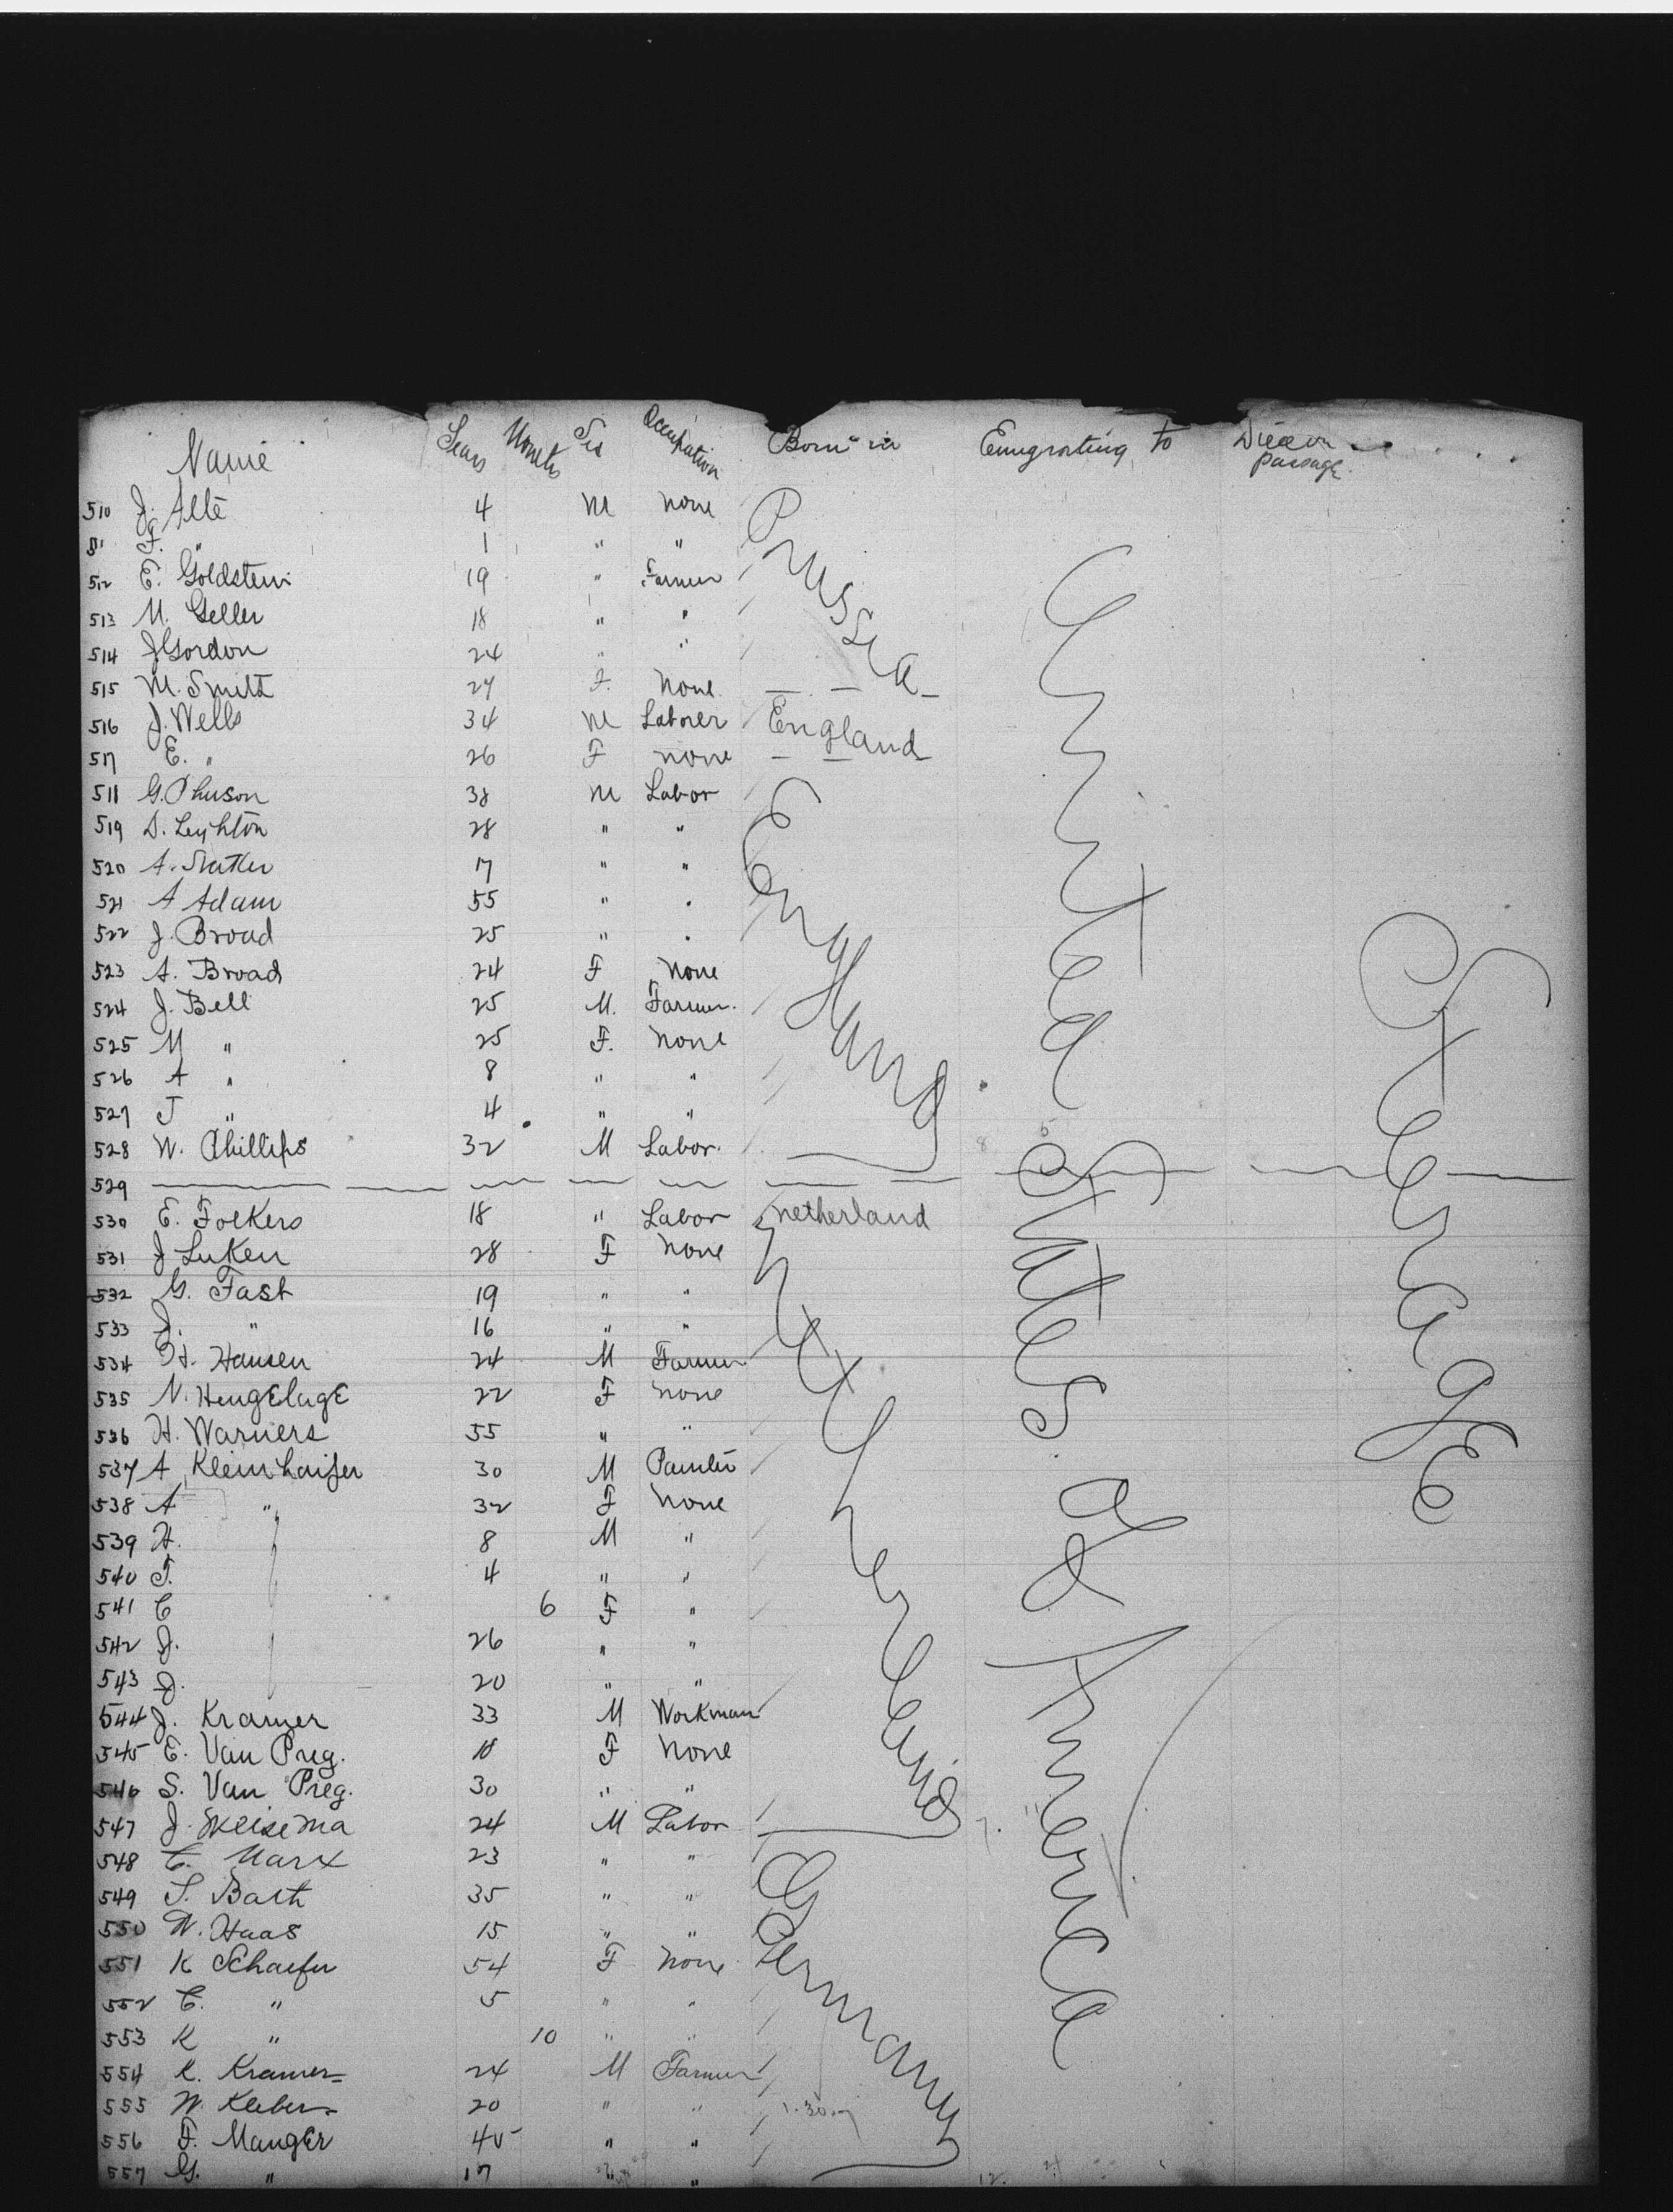 Name Years Months Sex Occupation Born in Emigrating to Died on passage
510 J. Alte 4 M None
511 F. " 1 " "
512 E. Goldstein 19 " Farmer
513 M. Geller 18 " "
514 J Gordon 24 " "
515 M. Smith 27 F. None
Prussia
516 J. Wells 34 M Laborer England
517 E. " 26 F none
518 G. 38 M Labor
519 D. Leyhton 28 " "
520 A. 17 " "
521 A Adam 55 " "
522 J. Broad 25 " "
523 A. Broad 24 F None
524 J. Bell 25 M. Farmer.
525 M " 25 F. none
526 A " 8 " "
527 J " 4 " "
528 W. Phillips 32 M Labor.
England
529
530 E. Folkers 18 " Labor Netherland
531 J Luken 28 F none
532 G. Fast 19 " "
533 J. " 16 " "
534 H. Hansen 24 M Farmer
535 N. HengElagE 22 F none
536 H. Warners 55 " "
537 A Kleinhaifer 30 M Painter
538 A " 32 F none
539 H. 8 M "
540 F. 4 " "
541 C 6 F "
542 J. 26 " "
543 J. 20 " "
544 J. Kramer 33 M Workman
545 E. Van Preg. 18 F None
546 S. Van Preg. 30 " "
547 J. 24 M Labor
Netherland
548 C. Marx 23 " "
549 S. Barth 35 " "
550 W. Haas 15 " "
551 K Schaefer 54 F None
552 C. " 5 " "
553 K " 10 " "
554 K. Kramer 24 M Farmer
555 W. Kleber 20 " "
556 F. MangEr 45 " "
557 G. " 17 " "
Germany
United States of America
SteeragE